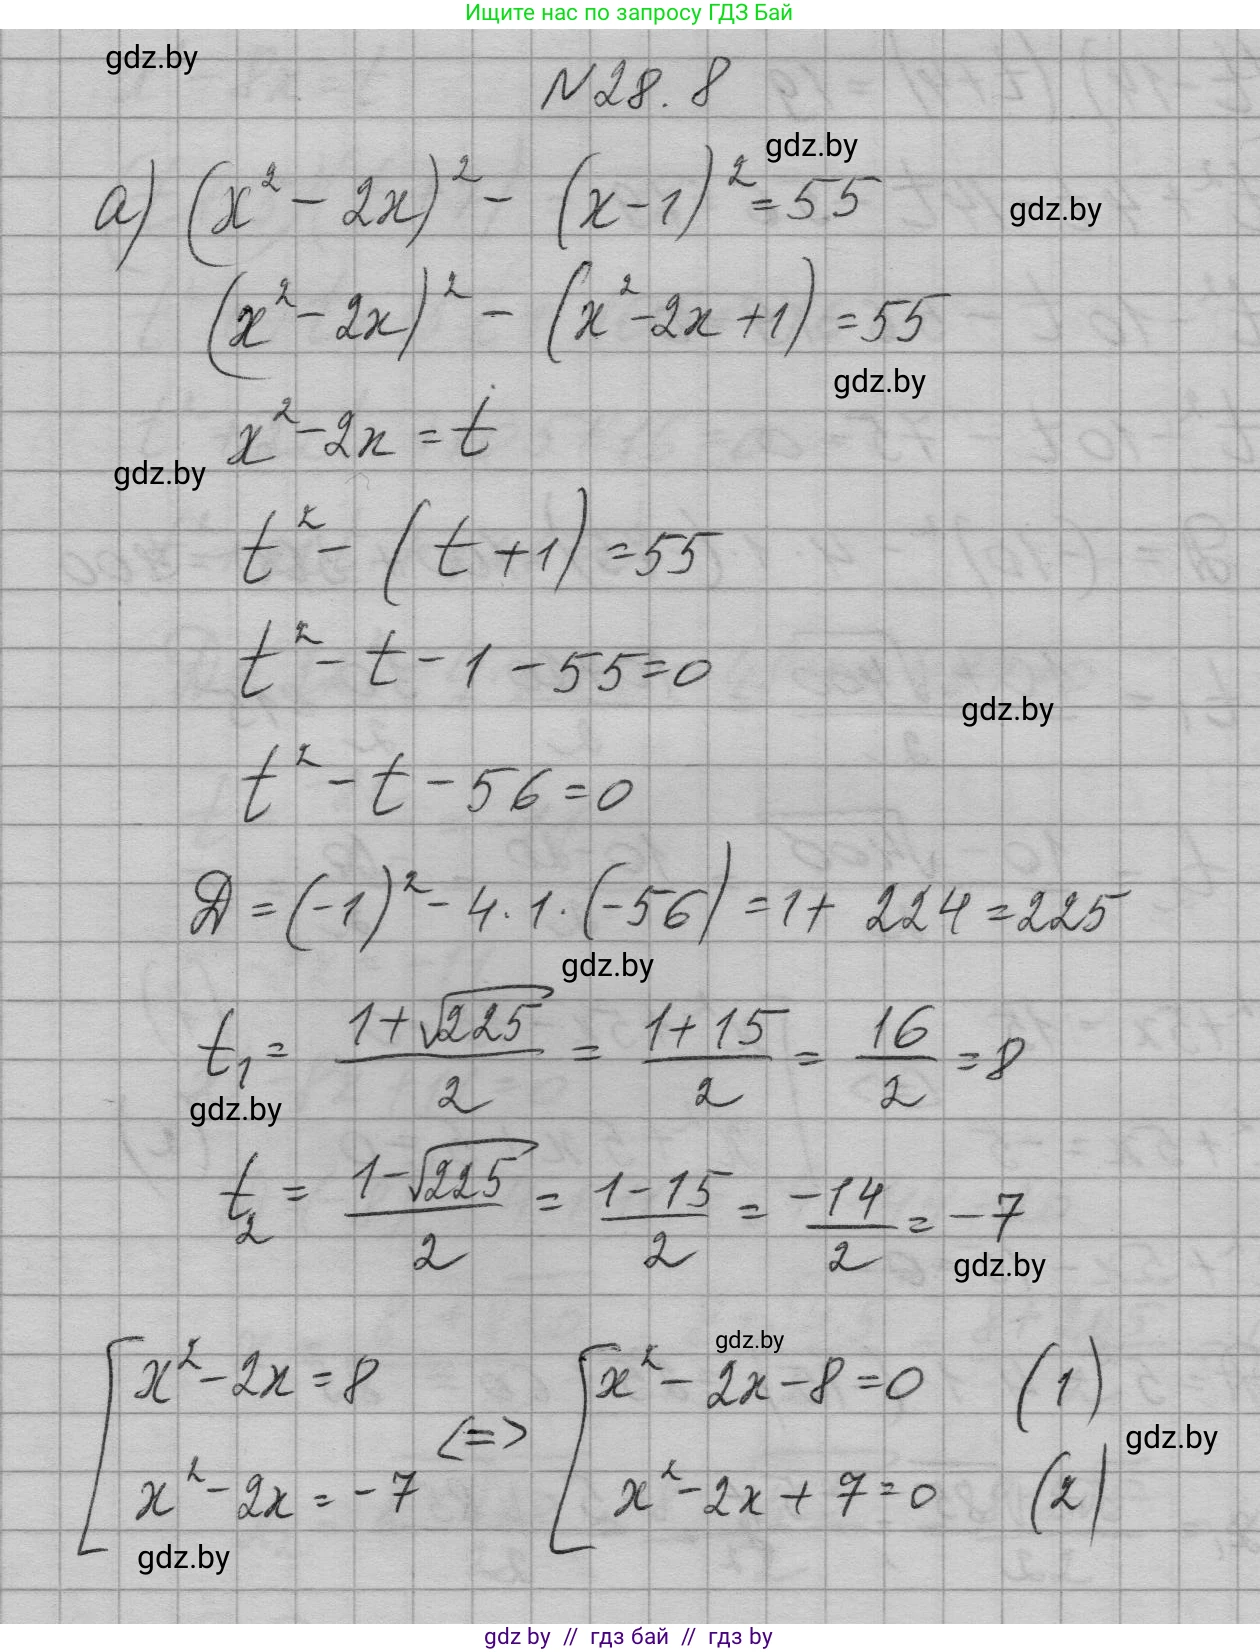 Ищите нас по запросу ГДЗ Бай
gdz.by
N28.8
gdz.by
а) (x² - 2x)² - (x-1)² = 55
gdz.by
(x² - 2x)² - (x² - 2x + 1) = 55
gdz.by
x² - 2x = t
gdz.by
t² - (t + 1) = 55
t² - t - 1 - 55 = 0
gdz.by
t² - t - 56 = 0
D = (-1)² - 4·1·(-56) = 1 + 224 = 225
gdz.by
t₁ = (1+√225)/2 = (1+15)/2 = 16/2 = 8
gdz.by
t₂ = (1-√225)/2 = (1-15)/2 = -14/2 = -7
gdz.by
gdz.by
[ x² - 2x = 8 <=> [ x² - 2x - 8 = 0 (1)
gdz.by
x² - 2x = -7 x² - 2x + 7 = 0 (2)
gdz.by
gdz.by // гдз бай // гдз by